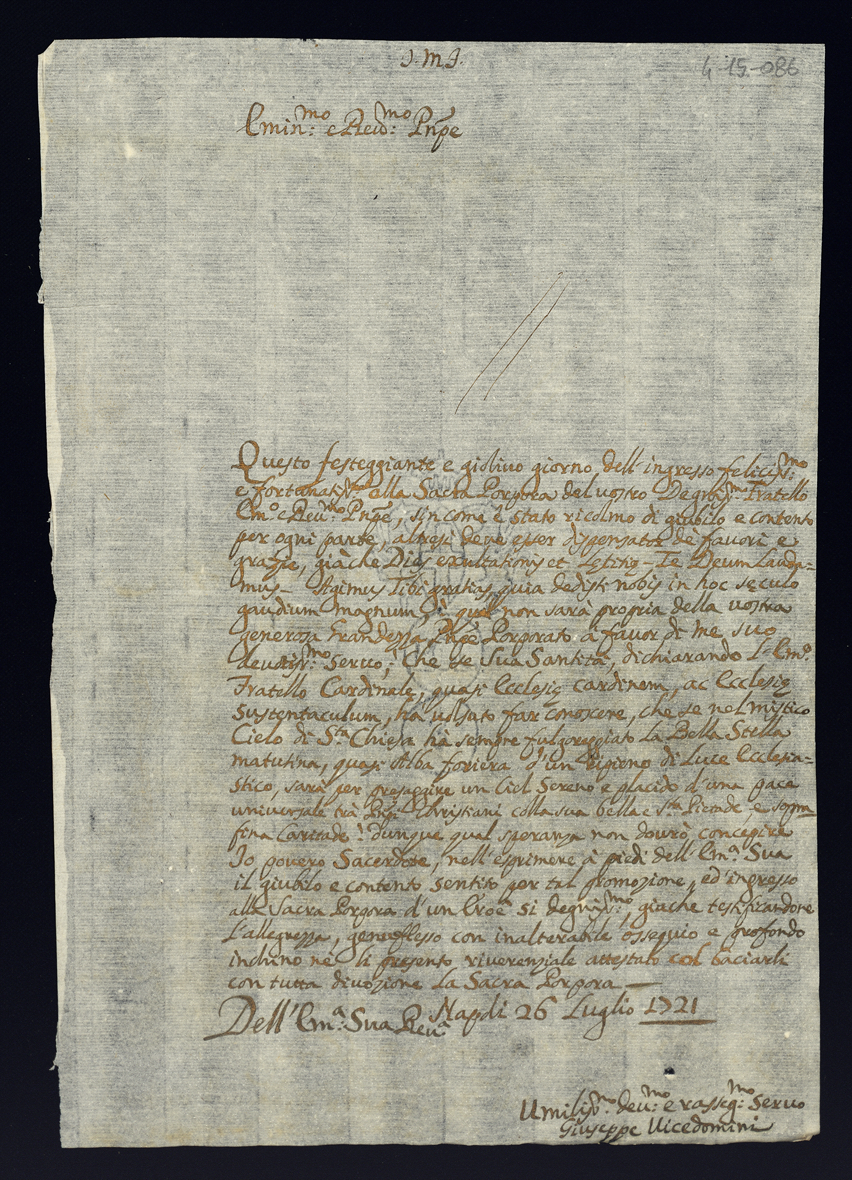 J. M. J.
4-15-086
Emin:mo e Reu:mo Pnpe
Questo festeggiante e gioliuo giorno dell'ingresso felicis:mo
e fortunatis:mo alla Sacra Porpora del uostro Degnis:mo Fratello
Em:o e Reu:mo Pnpe, sincome è stato ricolmo di giubilo e contento
per ogni parte, altresi deue esser dispensator de fauori e
grazie, giàche Dies exultationis et Letitię - Te Deum Lauda=
mus - Agimus Tibi gratias, quia dedisti nobis in hoc sęculo
gaudium magnum, e qual non sarà propria della uostra
generosa Grandezza Pnpe Porporato à fauor di me suo
deuotis:mo Seruo; Che se Sua Santità, dichiarando L'Em:o
Fratello Cardinale, quasi Ecclesię cardinem, ac Ecclesię
Sustentaculum, hà uolsuto far conoscere, che se nel mistico
Cielo di S:ta Chiesa hà sempre fulgoreggiato La Bella Stella
matutina, quasi Alba foriera d'un ripieno di Luce Ecclesia=
stico, sarà per proseguire un Ciel Sereno e placido d'una pace
uniuersale trà Christiani colla sua bella e S:ta Pietade, e sopra
fina Caritade! dunque qual speranza non dourò concepire
Io pouero Sacerdote, nell'esprimere à piedi dell'Em:a Sua
il giubilo e contento sentito per tal promozione, ed'ingresso
alla Sacra Porpora d'un Eroe si degnis:mo, giache testificandone
L'allegrezza, genuflesso con inalterabile ossequio e profondo
inchino ne li presento riuerenziale attestato col baciarli
con tutta diuozione La Sacra Porpora —
Dell'Em:a Sua Reu:a Napoli 26 Luglio 1721
Umilis:mo deu:mo e rasseg:mo Seruo
Giuseppe Vicedomini